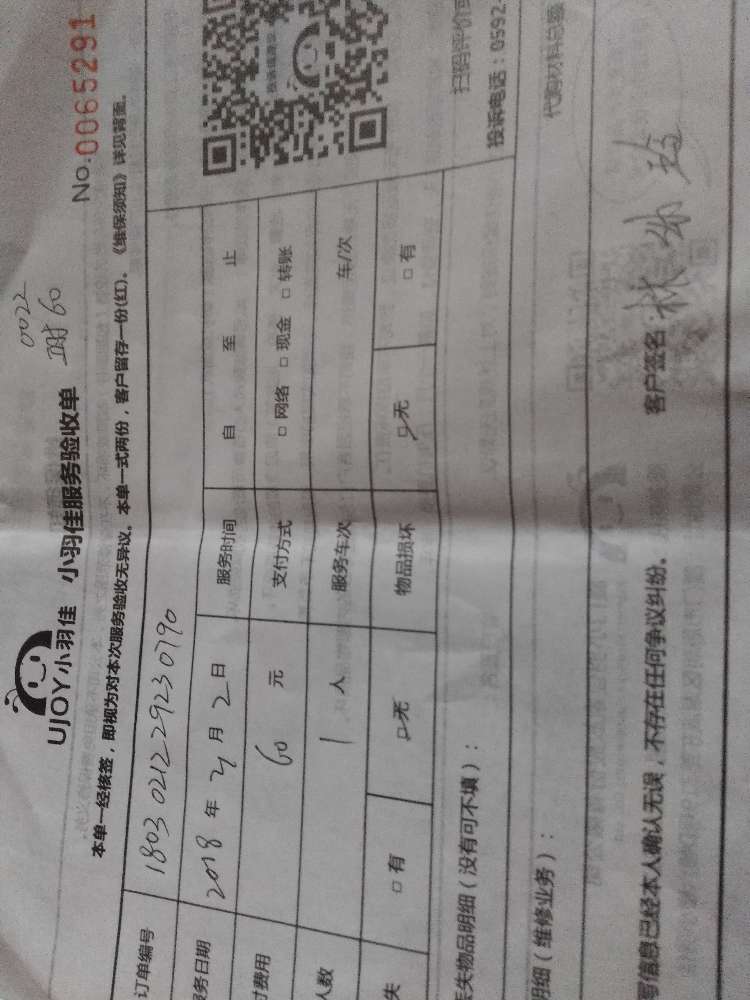 UJOY小羽佳 小羽佳服务验收单
0022
时60
No.0065291
本单一经核签，即视为对本次服务验收无异议。本单一式两份，客户留存一份(红)。《维保须知》详见背面。
订单编号 1803021229230790
务日期 2018 年 3 月 2 日 服务时间 自 至 止
费用 60 元 支付方式 □ 网络 □ 现金 □ 转账
人数 1 人 服务车次 车/次
失 □ 有 □ 无 物品损坏 □ 无 □ 有
扫码评价
投诉电话：0592-
丢失物品明细（没有可不填）：
明细（维修业务）：
代购材料总额
写信息已经本人确认无误，不存在任何争议纠纷。
客户签名：林